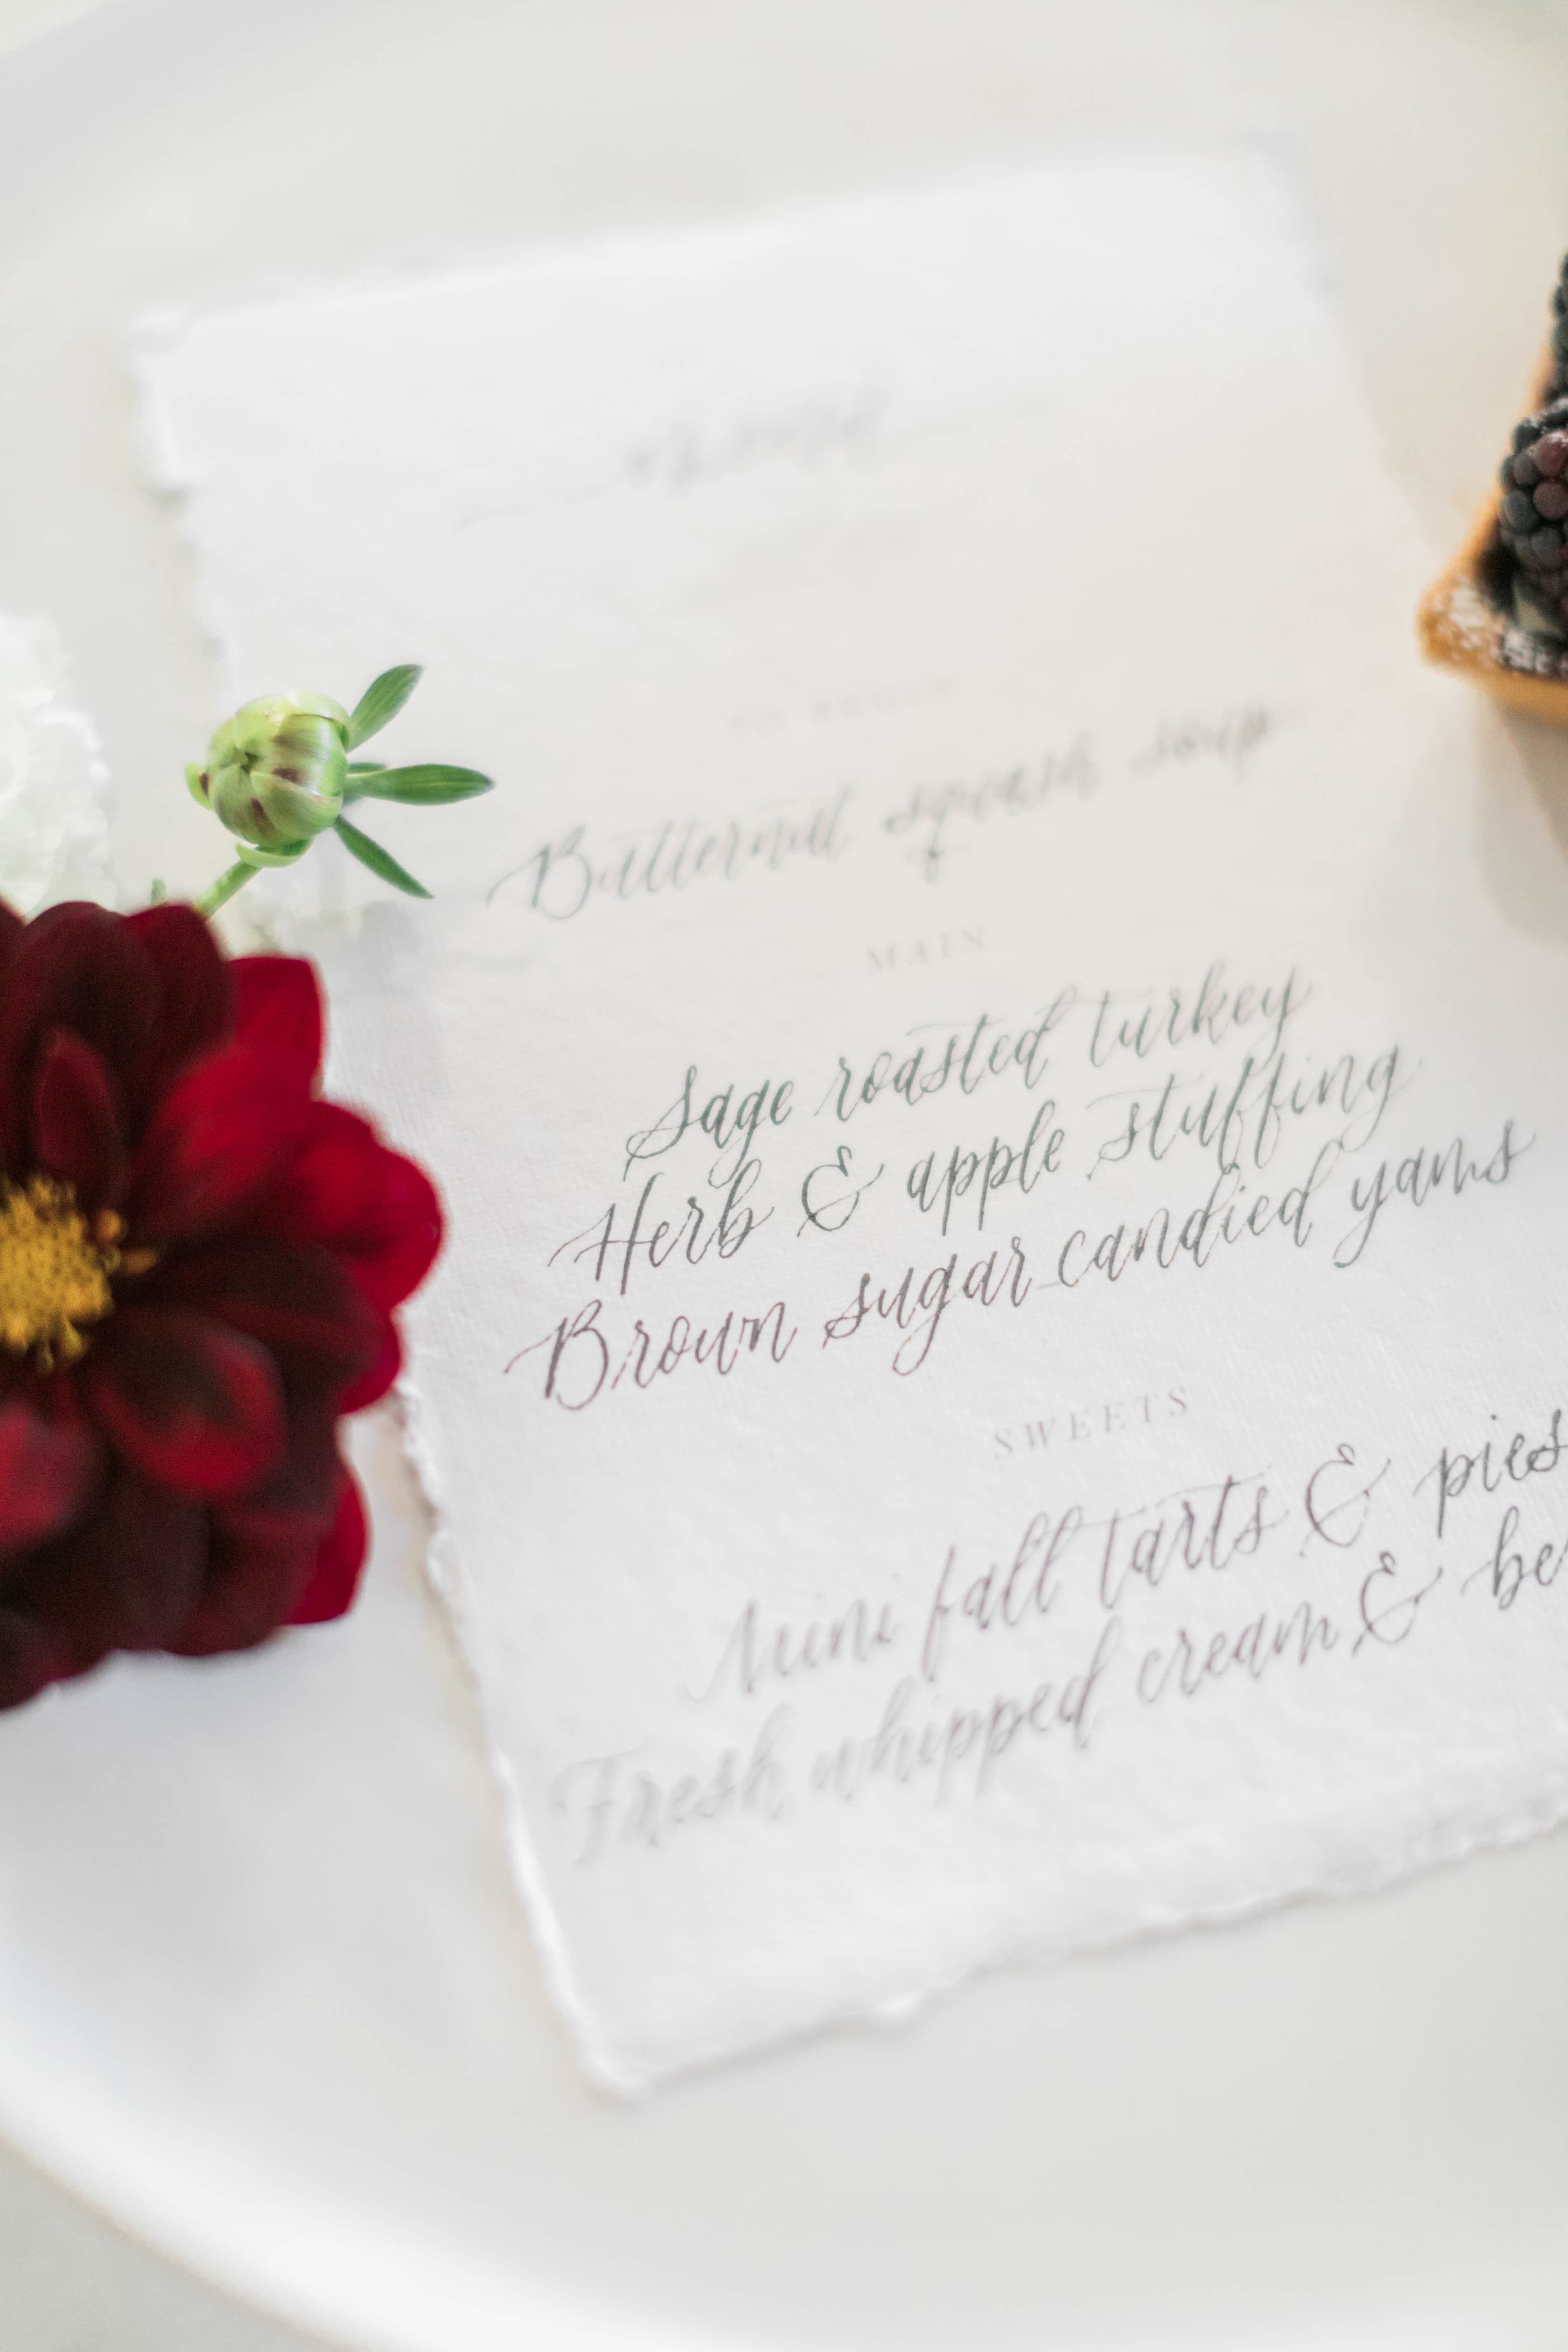 Butternut squash soup
MAIN
Sage roasted turkey
Herb & apple stuffing
Brown sugar candied yams
SWEETS
Mini fall tarts & pies
Fresh whipped cream &